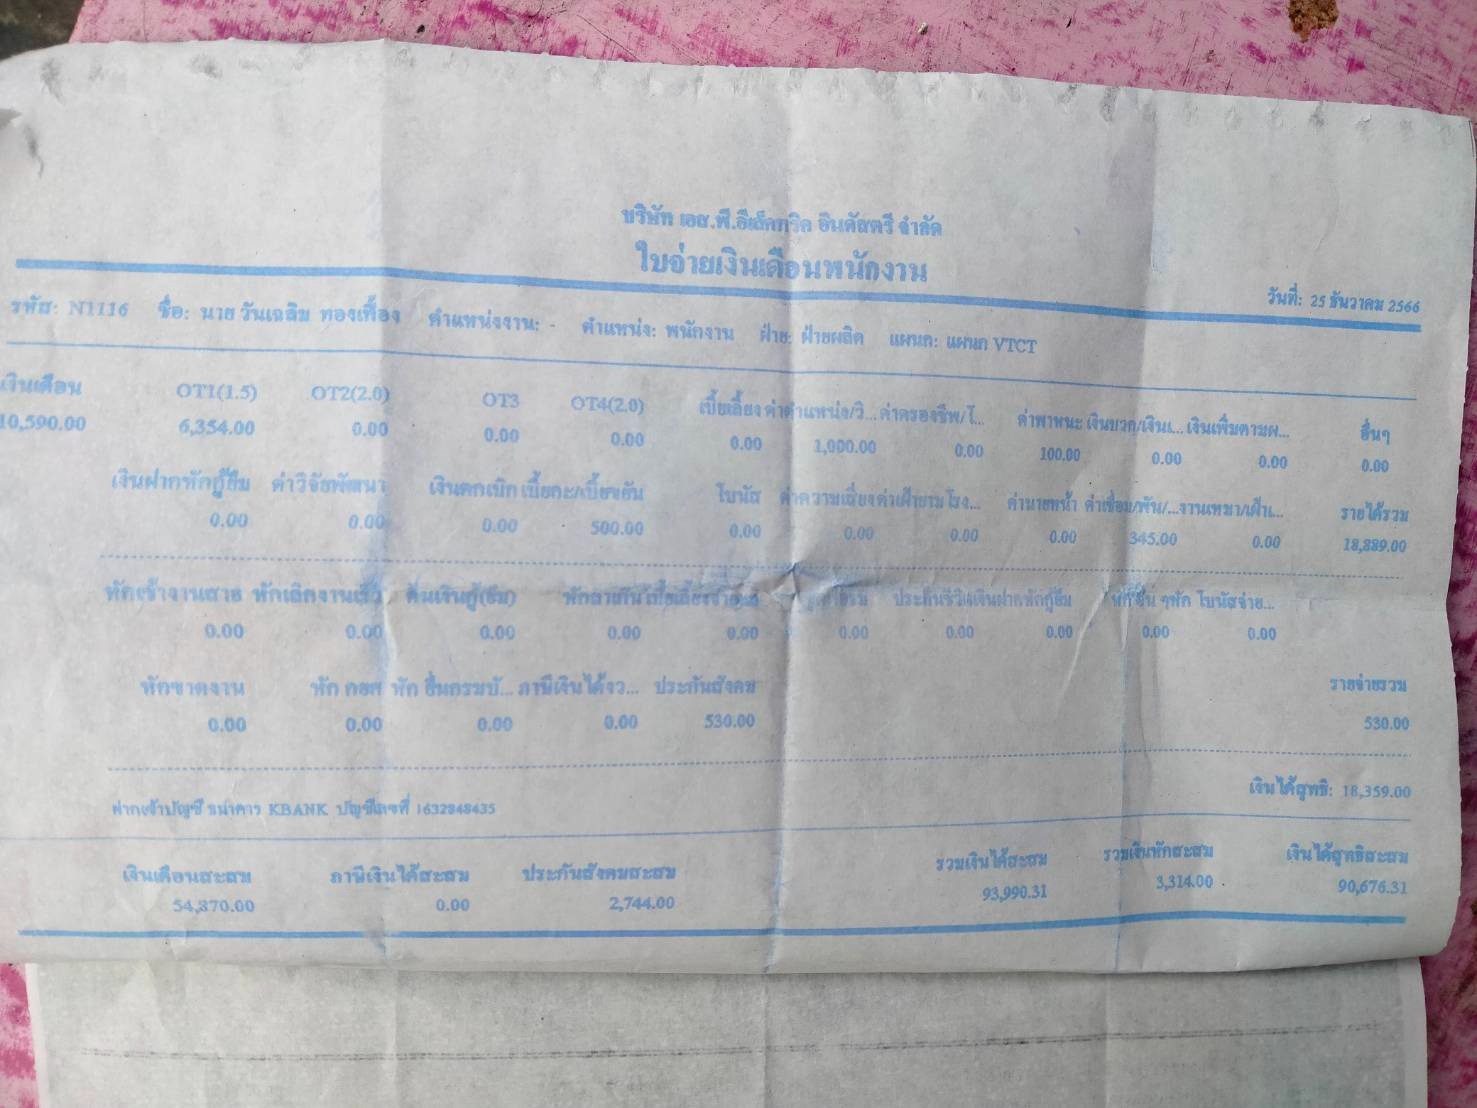 บริษัท เอส.พี.อีเล็คทริค อินดัสตรี จำกัด
ใบจ่ายเงินเดือนพนักงาน
วันที่: 25 ธันวาคม 2566
รหัส: N1116 ชื่อ: นาย วันเฉลิม ทองเฟื้อง ตำแหน่งงาน: - ตำแหน่ง: พนักงาน ฝ่าย: ฝ่ายผลิต แผนก: แผนก VTCT
เงินเดือน OT1(1.5) OT2(2.0) OT3 OT4(2.0) เบี้ยเลี้ยง ค่าตำแหน่ง/วิ... ค่าครองชีพ/โ... ค่าพาหนะ เงินบวก/เงินเ... เงินเพิ่มตามผ... อื่นๆ
10,590.00 6,354.00 0.00 0.00 0.00 0.00 1,000.00 0.00 100.00 0.00 0.00 0.00
เงินฝากหักกู้ยืม ค่าวิจัยพัฒนา เงินตกเบิก เบี้ยกะ/เบี้ยขยัน โบนัส ค่าความเสี่ยง ค่าเฝ้ายามโรง... ค่านายหน้า ค่าเชื่อม/พัน/... งานเหมา/เฝ้า... รายได้รวม
0.00 0.00 0.00 500.00 0.00 0.00 0.00 0.00 345.00 0.00 18,889.00
หักเข้างานสาย หักเลิกงานเร็ว คืนเงินกู้(ยืม) ประกันชีวิต เงินฝากหักกู้ยืม หักอื่น ๆ หัก โบนัสจ่าย...
0.00 0.00 0.00 0.00 0.00 0.00 0.00 0.00 0.00 0.00
หักขาดงาน หัก กยศ หัก อื่นกรมบั... ภาษีเงินได้งว... ประกันสังคม รายจ่ายรวม
0.00 0.00 0.00 0.00 530.00 530.00
ฝากเข้าบัญชี ธนาคาร KBANK บัญชีเลขที่ 1632848435 เงินได้สุทธิ: 18,359.00
เงินเดือนสะสม ภาษีเงินได้สะสม ประกันสังคมสะสม รวมเงินได้สะสม รวมเงินหักสะสม เงินได้สุทธิสะสม
54,870.00 0.00 2,744.00 93,990.31 3,314.00 90,676.31